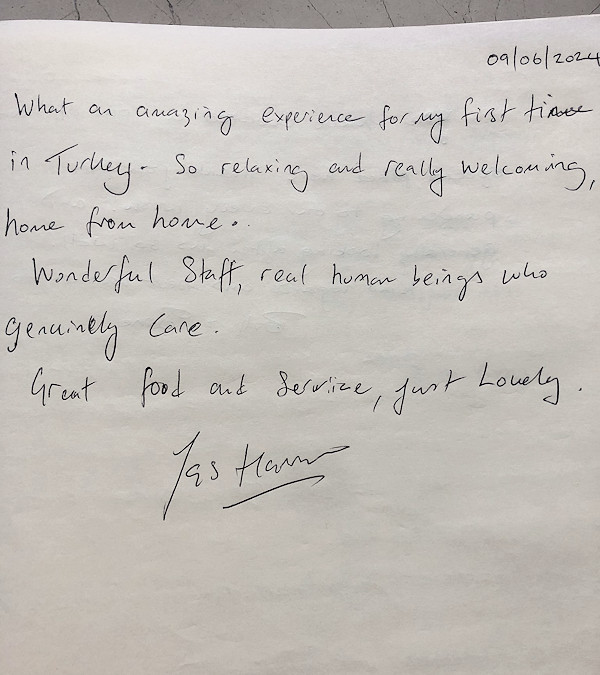 09/06/2024
What an amazing experience for my first time
in Turkey. So relaxing and really welcoming,
home from home.
Wonderful Staff, real human beings who
genuinely Care.
Great food and Service, just Lovely.
Jas